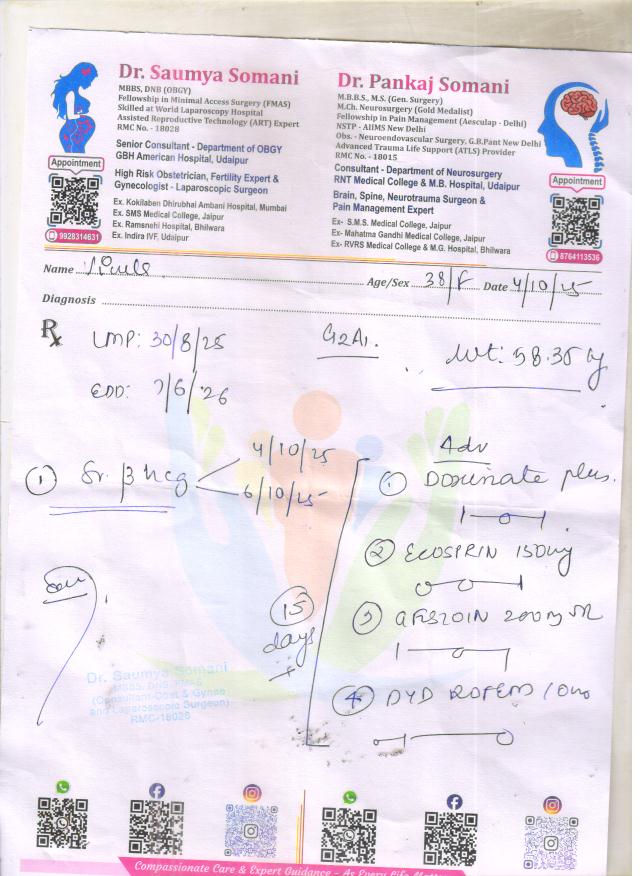 Dr. Saumya Somani
MBBS, DNB (OBGY)
Fellowship in Minimal Access Surgery (FMAS)
Skilled at World Laparoscopy Hospital
Assisted Reproductive Technology (ART) Expert
RMC No. - 18028
Senior Consultant - Department of OBGY
GBH American Hospital, Udaipur
High Risk Obstetrician, Fertility Expert &
Gynecologist - Laparoscopic Surgeon
Ex. Kokilaben Dhirubhai Ambani Hospital, Mumbai
Ex. SMS Medical College, Jaipur
Ex. Ramsnehi Hospital, Bhilwara
Ex. Indira IVF, Udaipur
Appointment
9928314631
Dr. Pankaj Somani
M.B.B.S., M.S. (Gen. Surgery)
M.Ch. Neurosurgery (Gold Medalist)
Fellowship in Pain Management (Aesculap - Delhi)
NSTP - AIIMS New Delhi
Obs. - Neuroendovascular Surgery, G.B.Pant New Delhi
Advanced Trauma Life Support (ATLS) Provider
RMC No. - 18015
Consultant - Department of Neurosurgery
RNT Medical College & M.B. Hospital, Udaipur
Brain, Spine, Neurotrauma Surgeon &
Pain Management Expert
Ex- S.M.S. Medical College, Jaipur
Ex- Mahatma Gandhi Medical College, Jaipur
Ex- RVRS Medical College & M.G. Hospital, Bhilwara
Appointment
8764113536
Name Age/Sex 38/F Date 4/10/25
Diagnosis
Rx LMP: 30/8/25 G2A1 Wt: 58.35 kg
EDD: 7/6/26
① Sr. β hcg 4/10/25
6/10/25
Adv
① Doxinate plus.
② ECOSPRIN 150mg
③ 200mg SR
④ 10mg
15 days
Dr. Saumya Somani
(Consultant-Obst & Gynae
and Laparoscopic Surgeon)
RMC-18028
Compassionate Care & Expert Guidance - As Every Life Matters